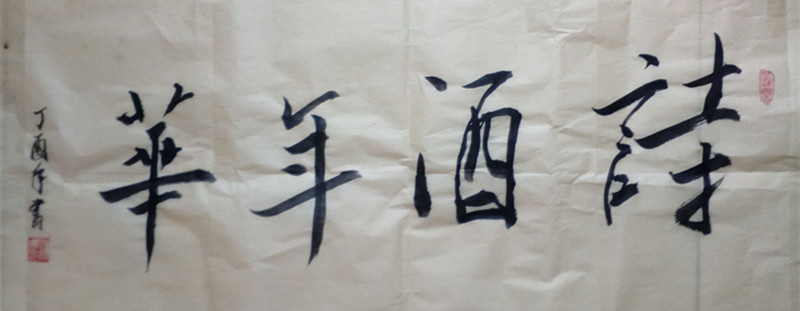 詩酒年華
丁酉年書